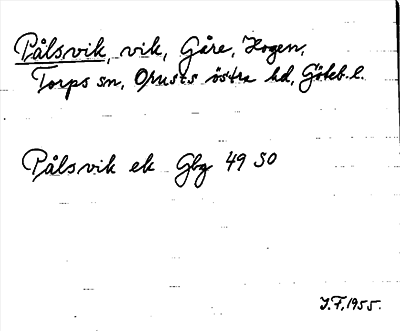 Pålsvik, vik, Gåre, Hogen,
Torps sn, Orusts östra hd, Göteb. l.
Pålsvik ek Gbg 49 SO
J.F. 1955.